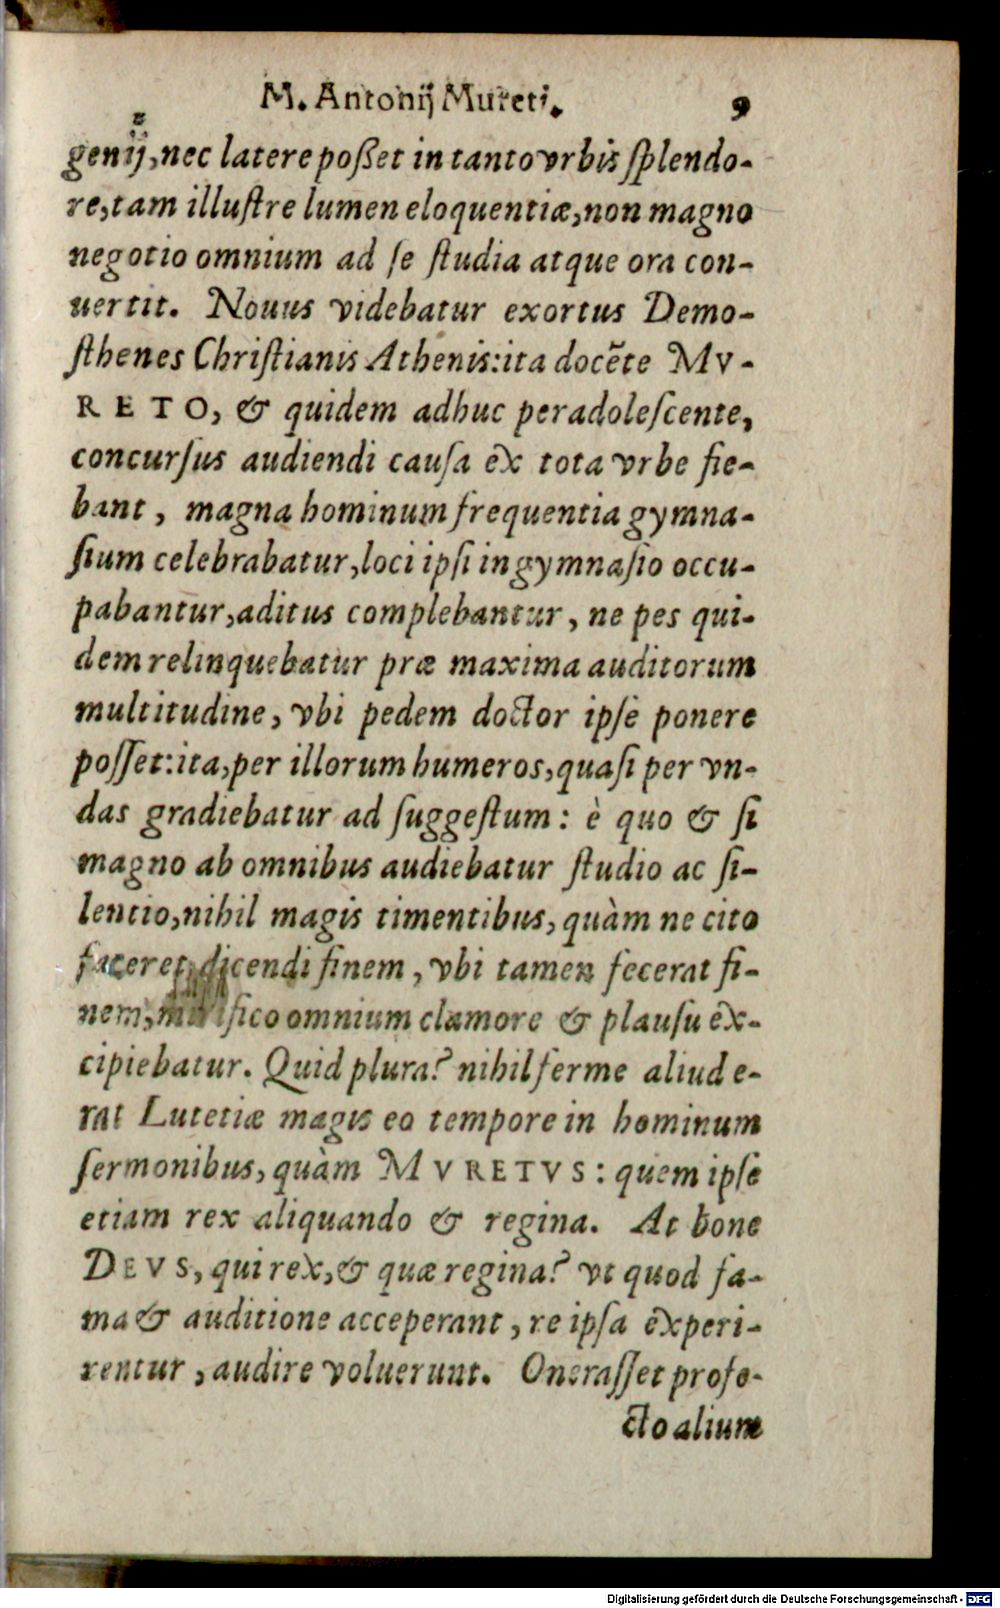 M. Antonij Mureti. 9
genij, nec latere poßet in tanto vrbis ſplendo-
re, tam illuſtre lumen eloquentiæ, non magno
negotio omnium ad ſe ſtudia atque ora con-
uertit. Nouus videbatur exortus Demo-
ſthenes Chriſtianis Athenis: ita docẽte MV-
RETO, & quidem adhuc peradoleſcente,
concurſus audiendi cauſa ex tota vrbe fie-
bant, magna hominum frequentia gymna-
ſium celebrabatur, loci ipſi in gymnaſio occu-
pabantur, aditus complebantur, ne pes qui-
dem relinquebatur præ maxima auditorum
multitudine, vbi pedem doctor ipſe ponere
poſſet: ita, per illorum humeros, quaſi per vn-
das gradiebatur ad ſuggeſtum: è quo & ſi
magno ab omnibus audiebatur ſtudio ac ſi-
lentio, nihil magis timentibus, quàm ne cito
faceret dicendi finem, vbi tamen fecerat fi-
nem, mirifico omnium clamore & plauſu ex-
cipiebatur. Quid plura? nihil ferme aliud e-
rat Lutetiæ magis eo tempore in hominum
ſermonibus, quàm MVRETVS: quem ipſe
etiam rex aliquando & regina. At bone
DEVS, qui rex, & quæ regina? vt quod fa-
ma & auditione acceperant, re ipſa experi-
rentur, audire voluerunt. Oneraſſet profe-
cto alium
Digitalisierung gefördert durch die Deutsche Forschungsgemeinschaft - DFG